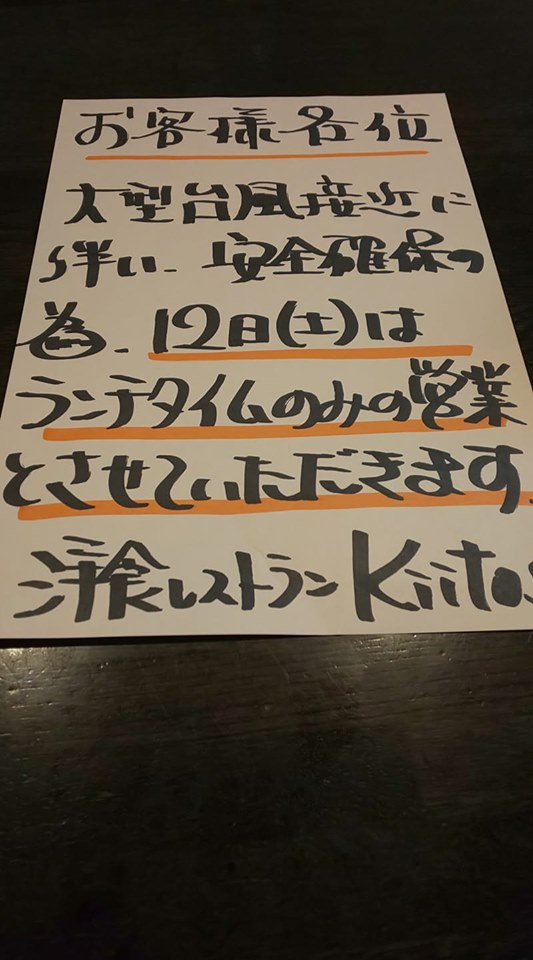 お客様各位
大型台風接近に
伴い、安全確保の
為、12日(土)は
ランチタイムのみの営業
とさせていただきます。
洋食レストラン Kiitos